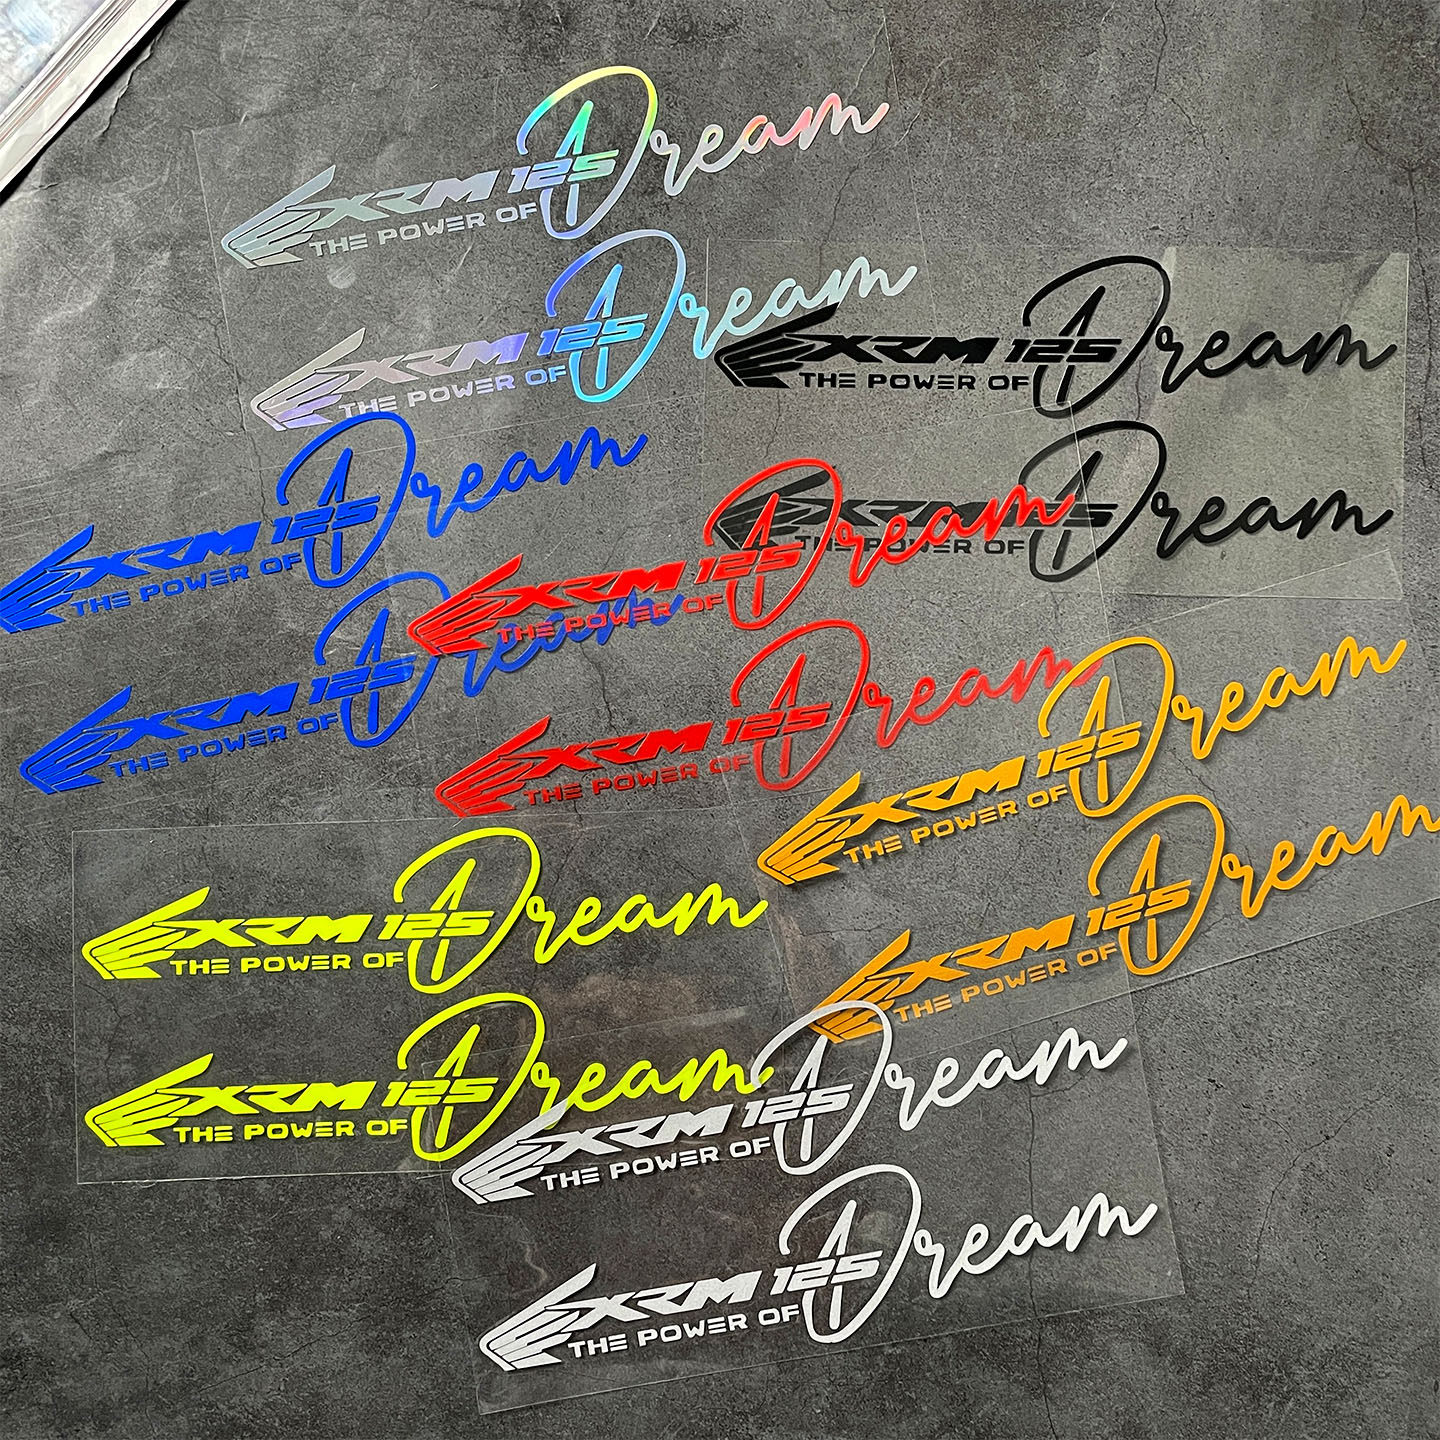 XRM 125
THE POWER OF Dream
XRM 125
THE POWER OF Dream
XRM 125
THE POWER OF Dream
XRM 125
THE POWER OF Dream
XRM 125
THE POWER OF Dream
XRM 125
THE POWER OF Dream
XRM 125
THE POWER OF Dream
XRM 125
THE POWER OF Dream
XRM 125
THE POWER OF Dream
XRM 125
THE POWER OF Dream
XRM 125
THE POWER OF Dream
XRM 125
THE POWER OF Dream
XRM 125
THE POWER OF Dream
XRM 125
THE POWER OF Dream